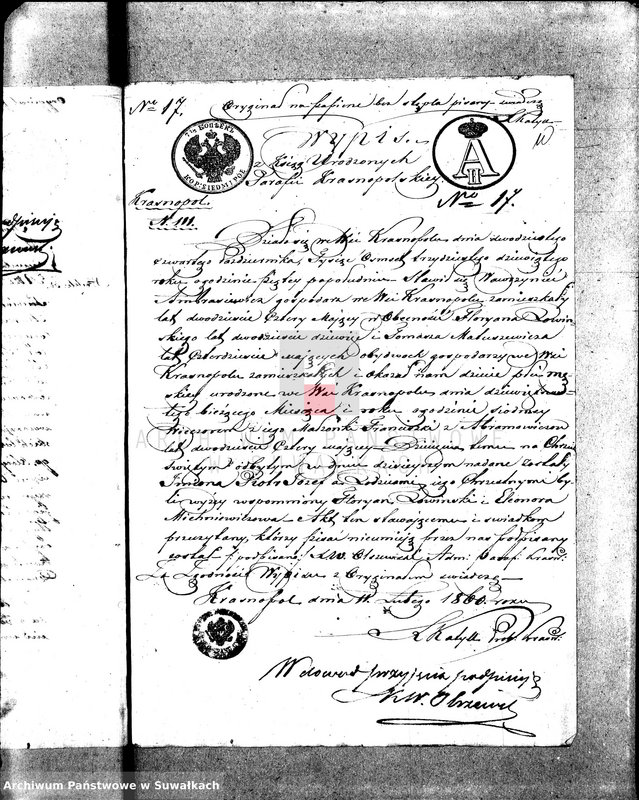 No 17. Oryginał na papierze bez stępla pisany świadczę
7½ КОПѢЕКЪ
KOP: SIEDM I PÓŁ
Wypis
z Księg Urodzonych
Parafii Krasnopolskiey
A II
No 17.
Krasnopol
N. 111.
Działo się we Wsi Krasnopolu dnia dwudziestego
czwartego Października, Tysiąc Osmset trzydziestego dziewiątego
roku o godzinie piątey popołudniu Stawił się Wawrzyniec
Ambrasiewicz gospodarz we Wsi Krasnopolu zamieszkały
lat dwadzieścia Cztery Maiący w Obecności Floryana Łowin-
skiego lat dwadzieścia dziewięć i Tomasza Matuszewicza
lat Czterdzieście maiących obydwoch gospodarzy we Wsi
Krasnopolu zamieszkałych i okazał nam dziecie płci męz-
kiey urodzone we Wsi Krasnopolu dnia dziewiętnas-
tego bieżącego Miesiąca i roku o godzinie siodmey
Wieczorem z iego Małżonki Franciszki z Abramowiczow
lat dwadzieścia Cztery maiącey Dziecięciu temu na Chrzcie
Swiętym odbytym w dniu dzisieyszym nadane zostały
Imiona Piotr Jozef a Rodzicami iego Chrzestnymi by-
li wyżey wspomniony Floryan Łowinski i Eleonora
Michniewiczowa - Akt ten stawaiącemu i swiadkom
przeczytany, ktorzy pisać nieumieią przez nas podpisany
został / podpisano / X. W. Olszewski Adm: Paraf: Krasn:
Za Zgodność Wypisu z Oryginałem świadczę
Krasnopol dnia 11 Lutego 1860 roku
Prob. Krasn.
W dowod przyjęcia podpisuję
X W. Olszewski
ARCHIWUM PAŃSTWOWE
Archiwum Państwowe w Suwałkach